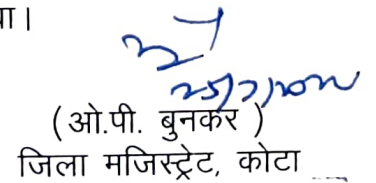 या।
(ओ.पी. बुनकर )
जिला मजिस्ट्रेट, कोटा